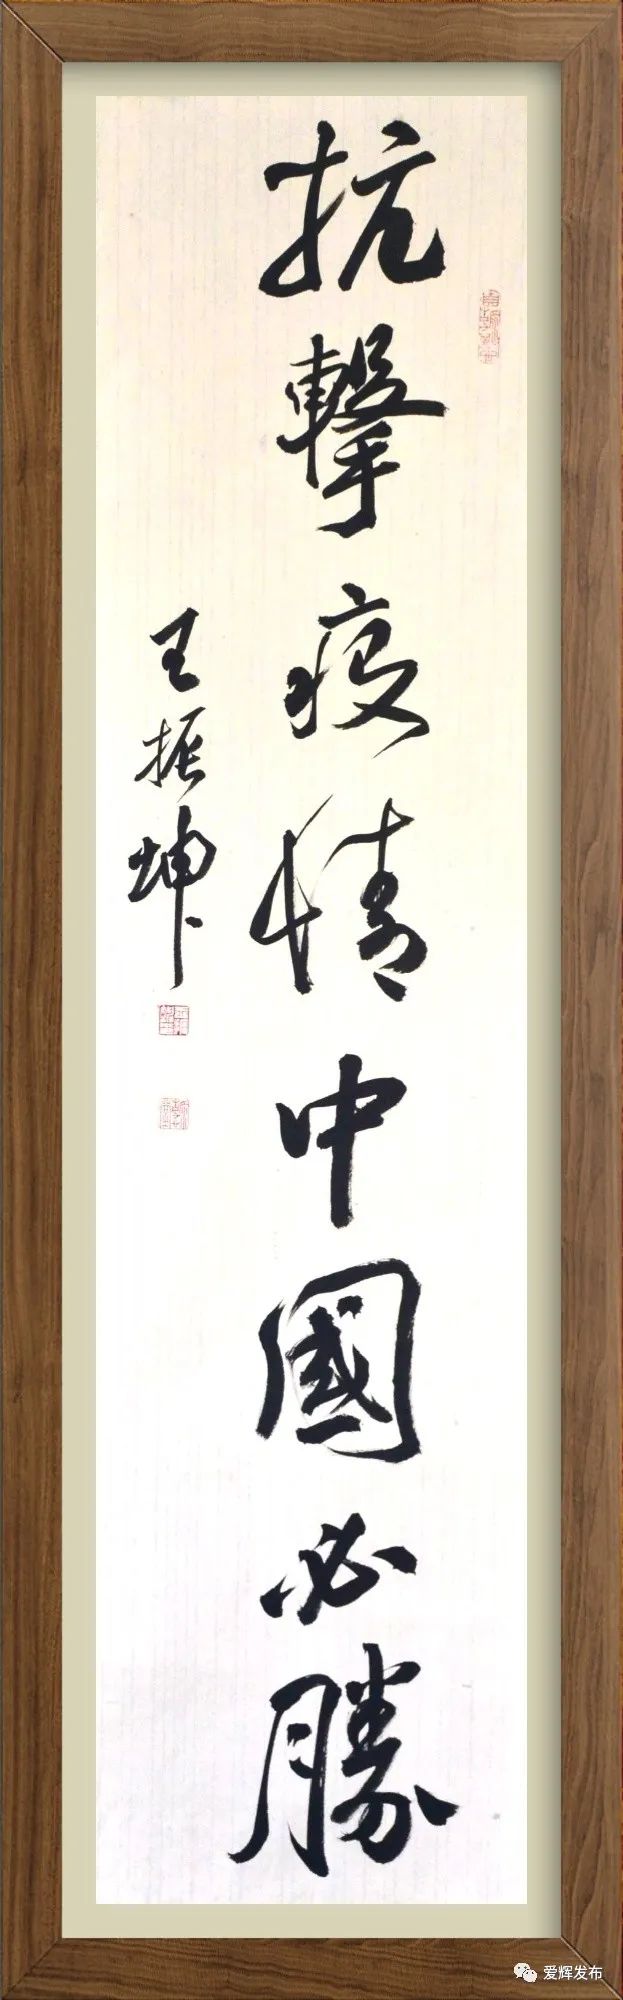 抗擊疫情中國必勝
王振坤
爱辉发布